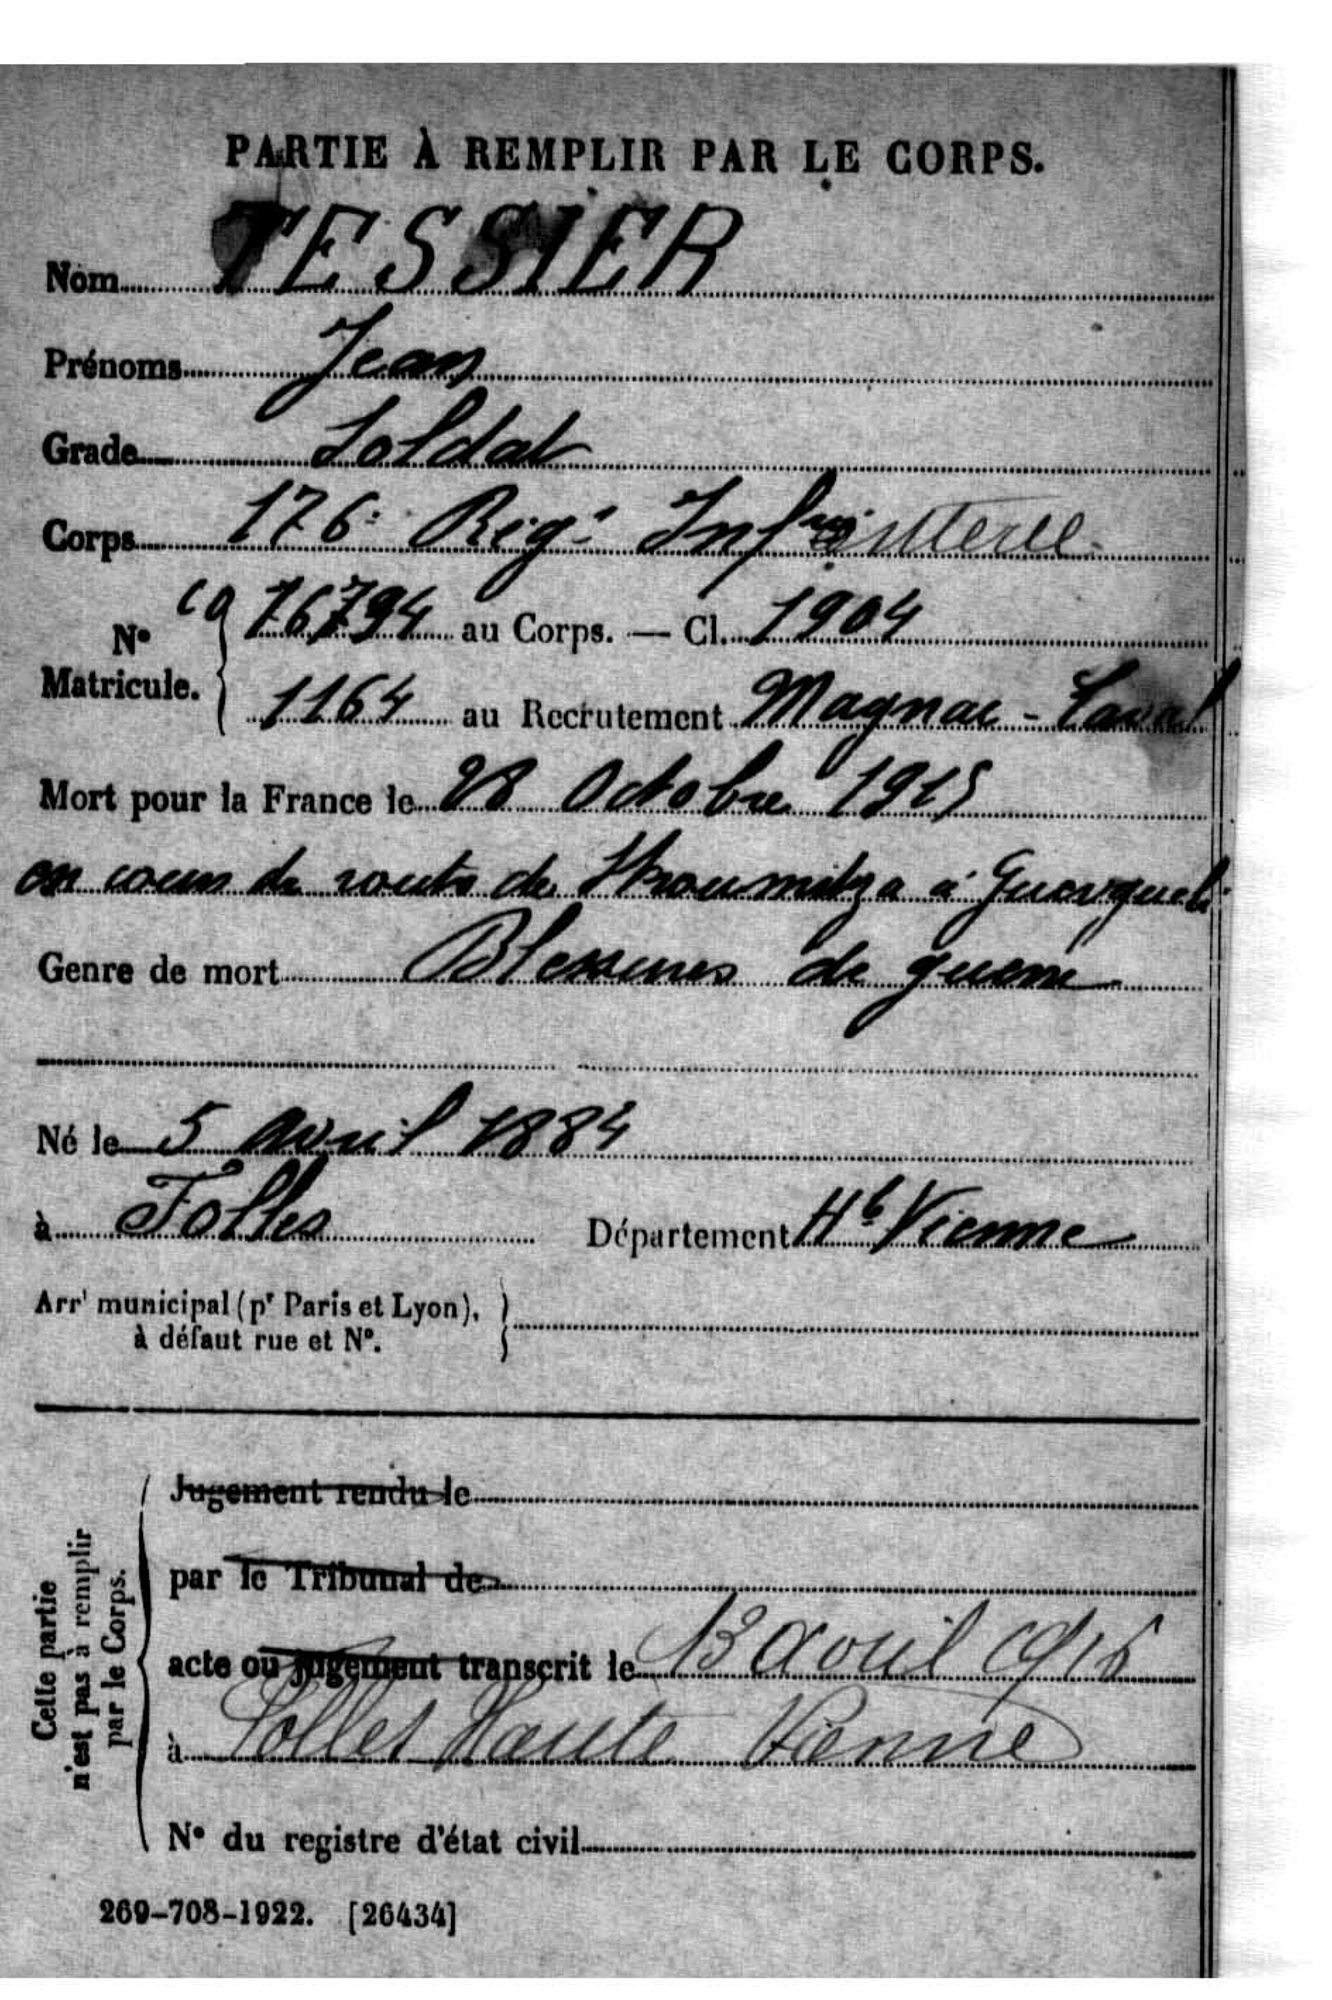 PARTIE À REMPLIR PAR LE CORPS.
Nom TESSIER
Prénoms Jean
Grade Soldat
Corps 176e Régt Infanterie
N° Matricule. 16794 au Corps. — Cl. 1904
1164 au Recrutement Magnac-Laval
Mort pour la France le 28 Octobre 1915
en cours de route de Stroumitza à Guevgueli
Genre de mort Blessures de guerre
Né le 5 Avril 1884
à Folles Département Hte Vienne
Arrt municipal (pr Paris et Lyon),
à défaut rue et N°.
Cette partie
n'est pas à remplir
par le Corps.
Jugement rendu le
par le Tribunal de
acte ou jugement transcrit le 13 avril 1916
à Folles Haute Vienne
N° du registre d'état civil
269-708-1922. [26434]